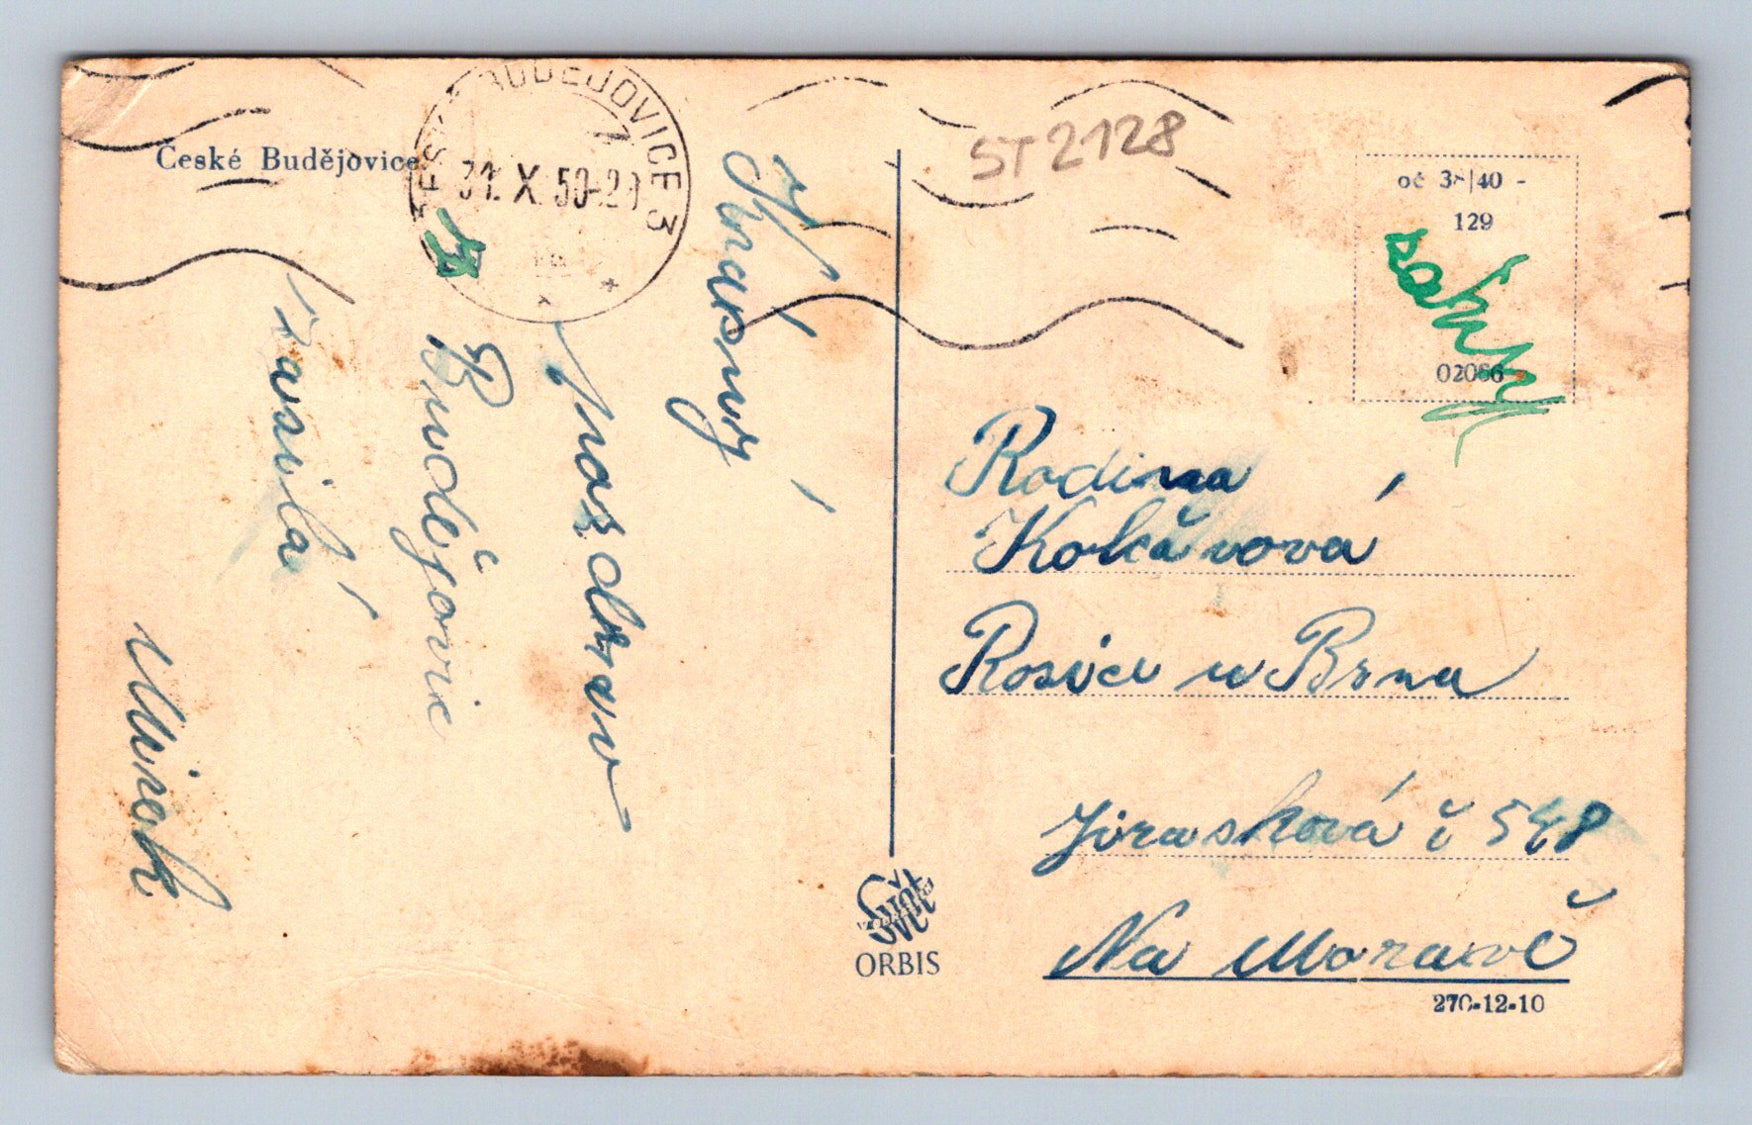 České Budějovice
ČESKÉ BUDĚJOVICE 3
31. X. 50-20
ST 2128
129
02066
Krásný
pozdrav
z
Budějovic
zasílá
Mirek
Rodina
Kolářová
Rosice u Brna
Jirasková č 548
Na Moravě
ORBIS
270-12-10